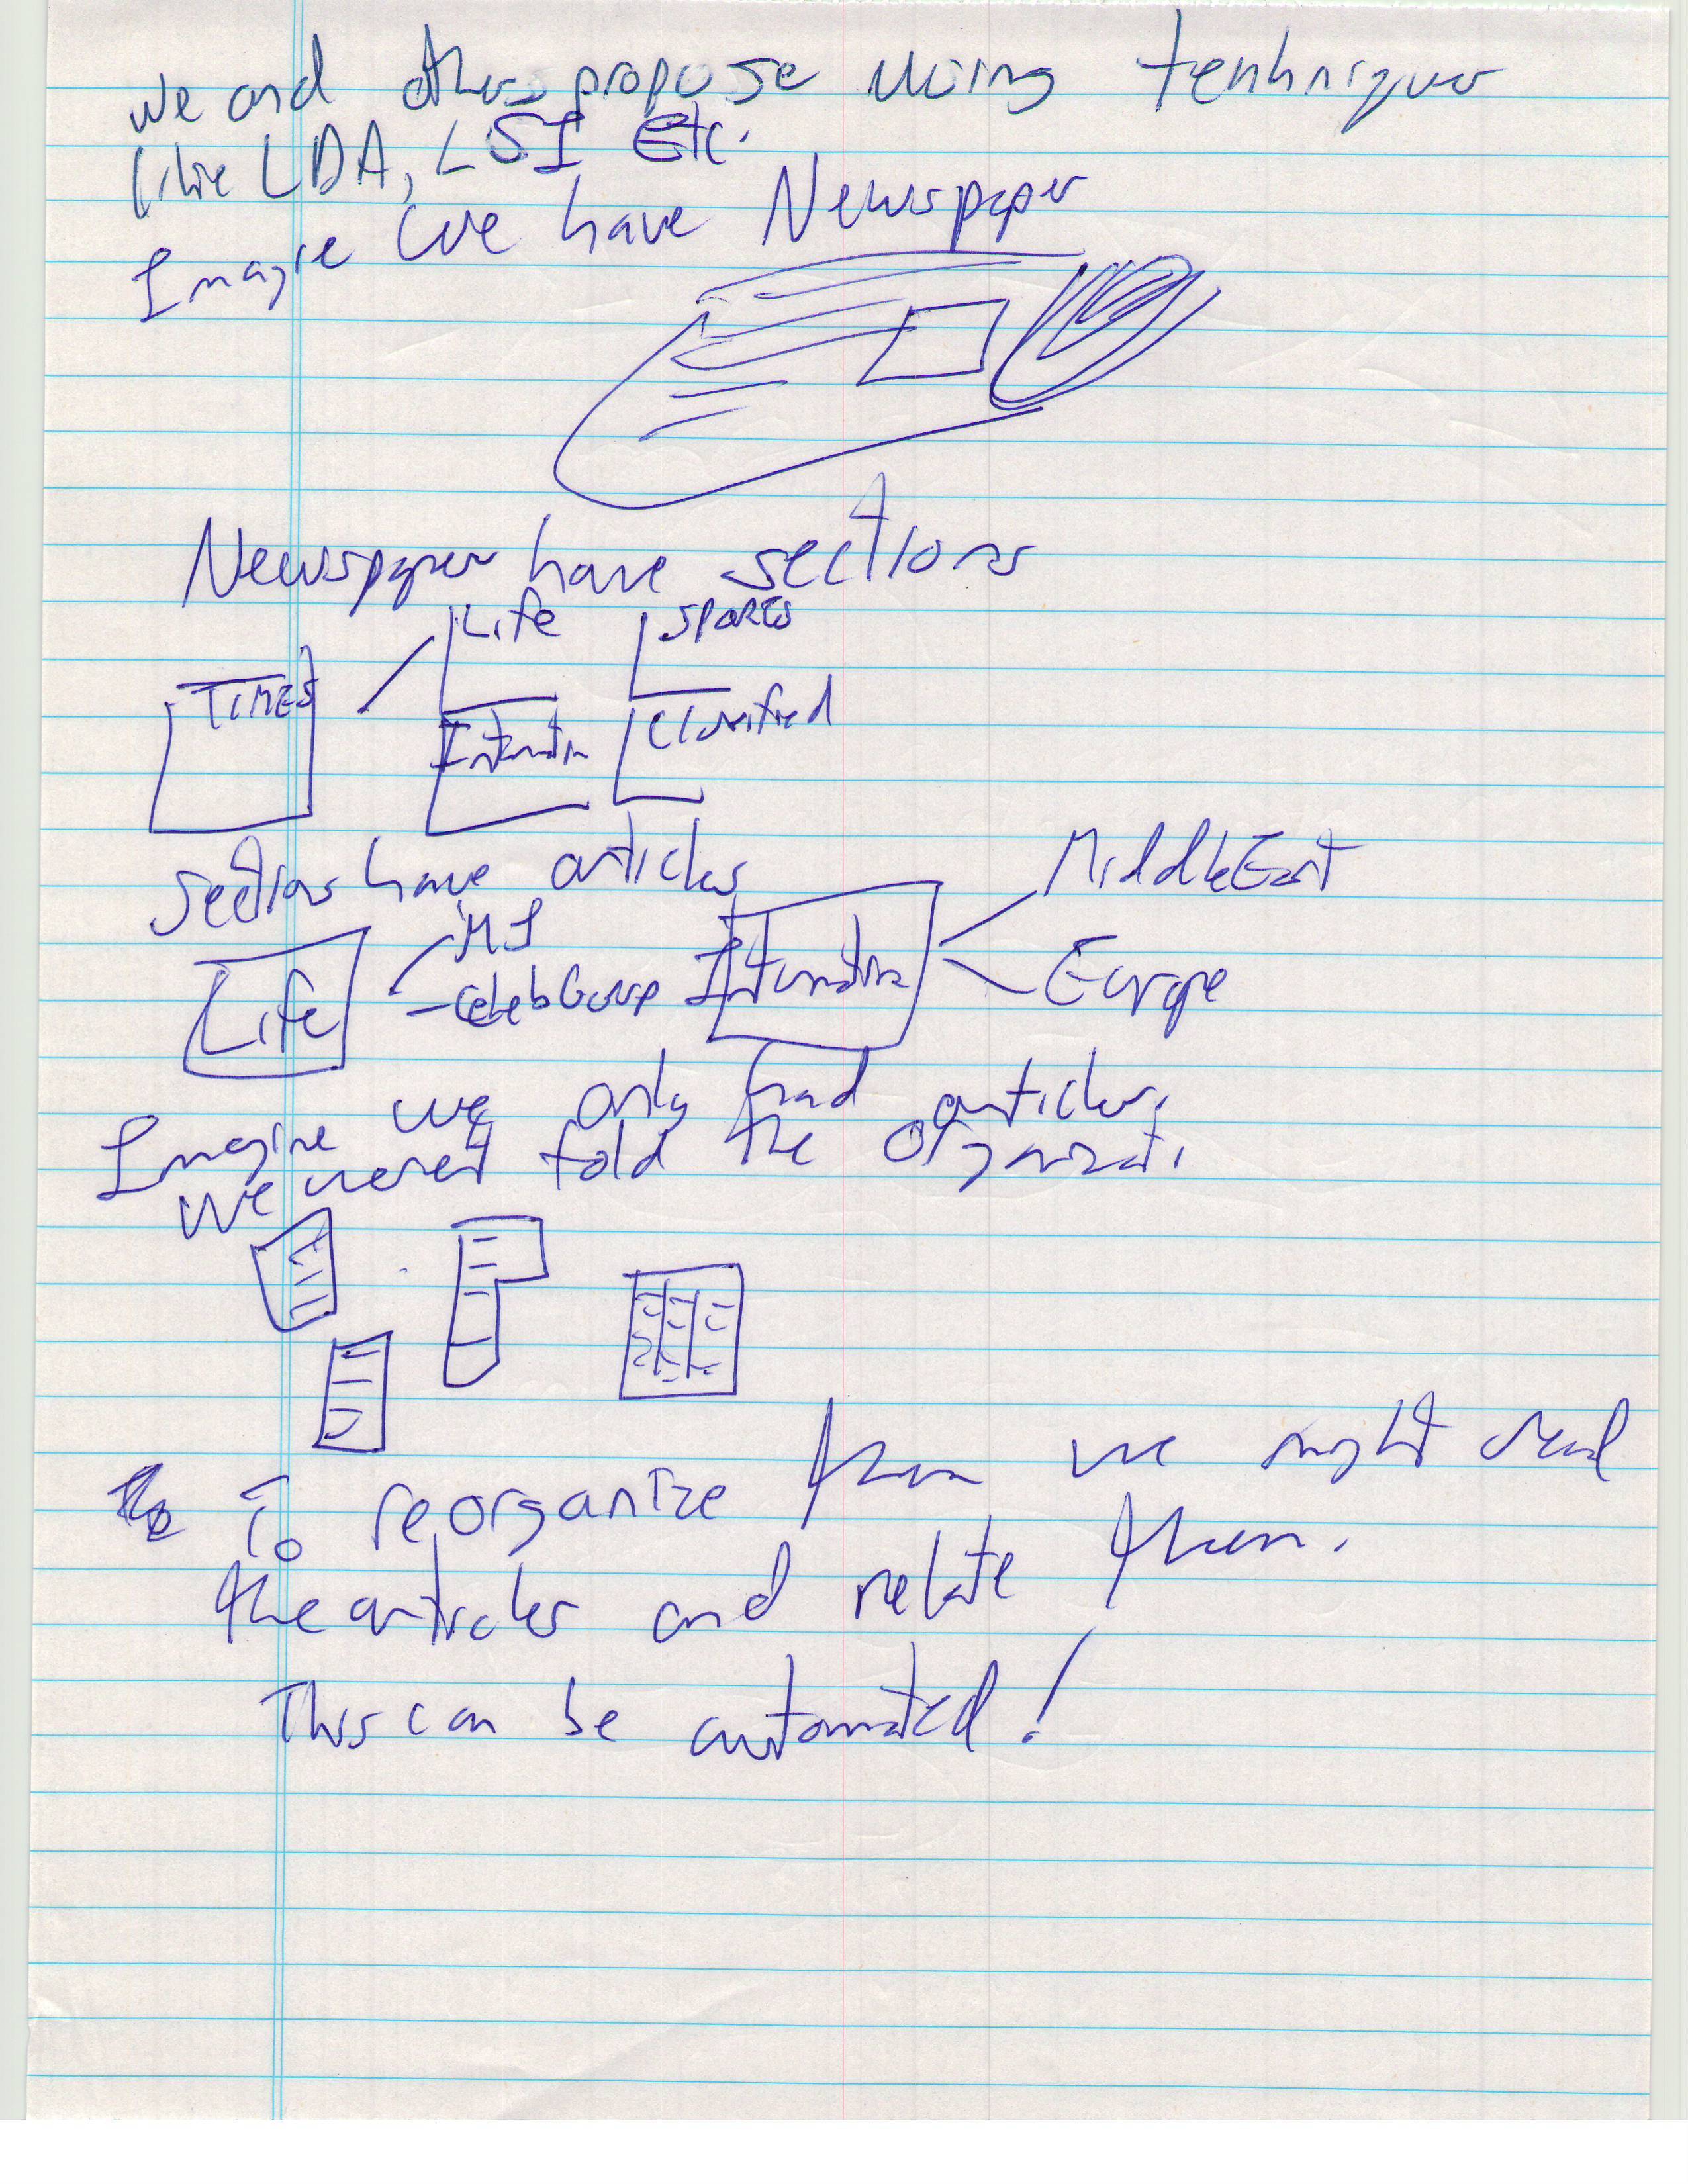 We and others propose using tenhniques
like LDA, LSI Etc.
Imagine we have Newspaper
Newspaper have sections
Life SPORTS
TIMES
Classified
Sections have articles
Middle East
MJ
Life
CelebGossip
Europe
Imagine we only had articles.
We weren't told the organizati.
To reorganize them we might read
the articles and relate them.
This can be automated!